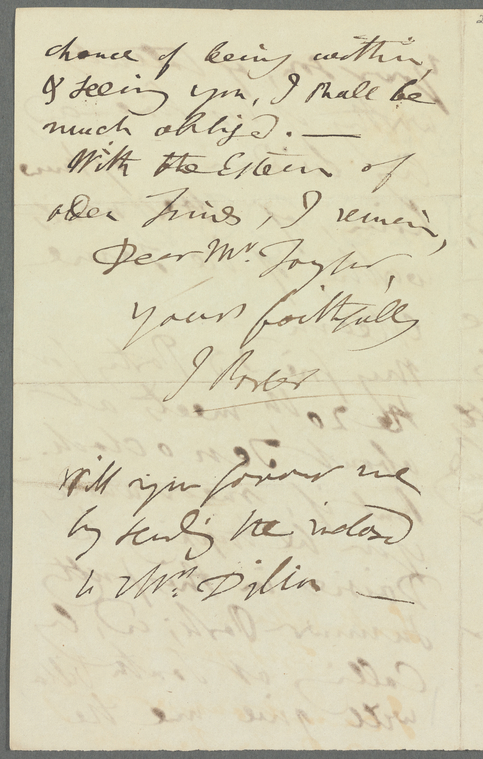 chance of being within,
& seeing you, I shall be
much obliged. —
With the Esteem of
olden times, I remain,
Dear Mr. Taylor,
yours faithfully
J
Will you favour me
by sending the inclosed
to Mrs. Dillon —